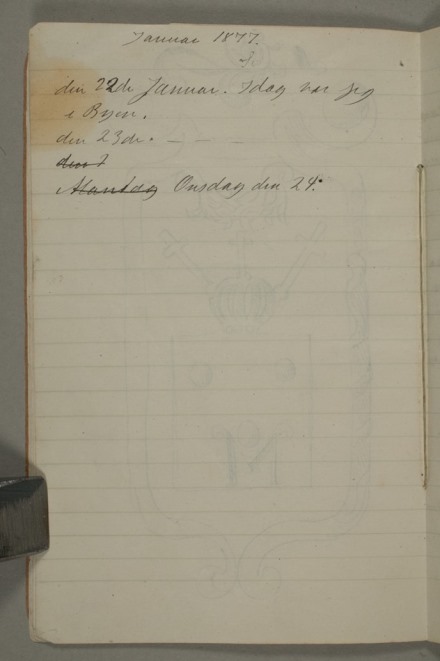 Januar 1877.
den 22de Januar. Idag var jeg
i Byen.
den 23de.
den
Mandag Onsdag den 24.